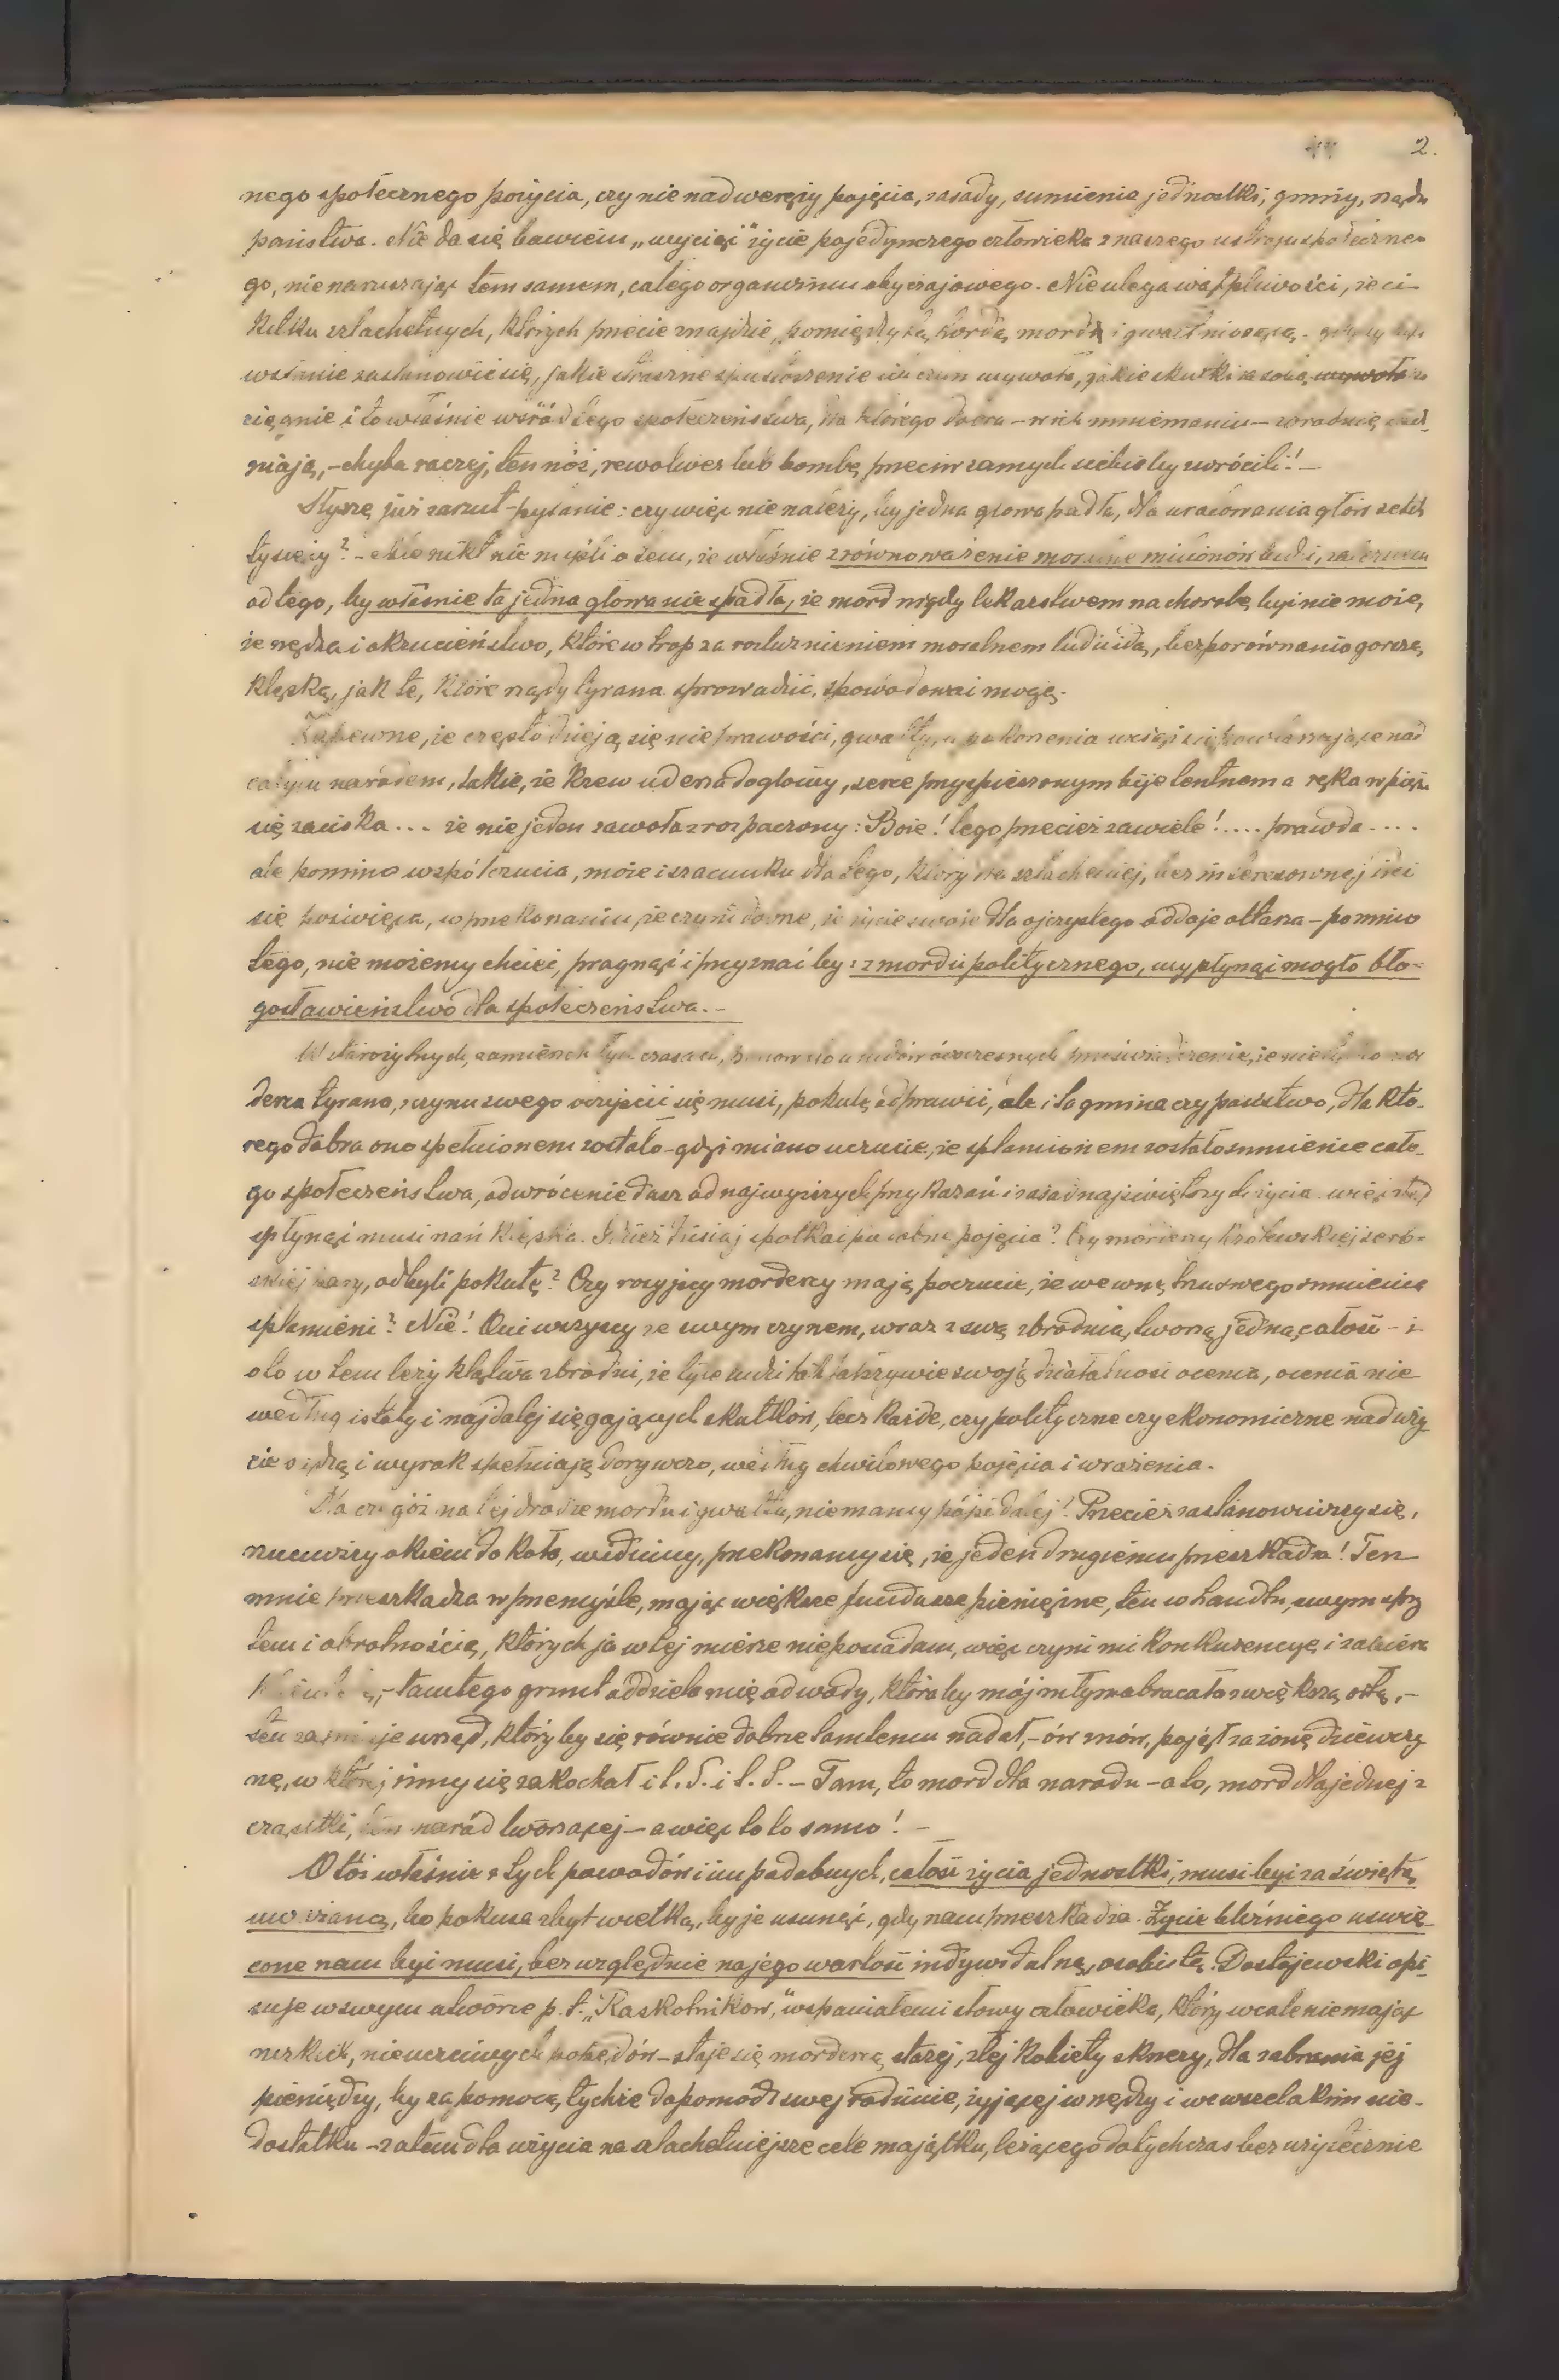 2.
nego społecznego pożycia, czy nie nadweręży pojęcia, zasady, sumienia jednostki, gminy, rządu
państwa. Nie da się bowiem „wyciąć” życie pojedynczego człowieka z naszego ustroju społeczne-
go, nie naruszając tem samem, całego organizmu obyczajowego. Nie ulega wątpliwości, że ci
kilku szlachetnych, których przecie znajdzie, pomiędzy tą hordą, mord i gwałt niosącą - gdyby byli
wstanie zastanowić się, jakie straszne spustoszenie ich czyn wywoła, jakie skutki za sobą
ciągnie i to właśnie wśród tego społeczeństwa, dla którego dobra - w ich mniemaniu - zbrodnię
niają, - chyba raczej, ten nóż, rewolwer lub bombę, przeciw samych siebie by zwrócili! -
Słyszę już zarzut - pytanie: czy więc nie należy, by jedna głowa padła, dla uratowania głów setek
tysięcy? - Ale nikt nie myśli o tem, że właśnie zrównoważenie moralne milionów ludzi, zależnem
od tego, by właśnie ta jedna głowa nie spadła, że mord nigdy lekarstwem na chorobę być nie może,
że nędza i okrucieństwo, które w trop za rozluźnieniem moralnem ludzi idą, bezporównania gorszą
klęską, jak te, które rządy tyrana sprowadzić, spowodować mogą.
Zapewne, że często dzieją się nieprawości, gwałty, nad
całym narodem, takie, że krew uderza do głowy, serce przyspieszonym bije tentnem a ręka w pięść
się zaciska... że nie jeden zawoła zrozpaczony: Boże! tego przecież zawiele!.... prawda....
ale pomimo współczucia, może i szacunku dla tego, który dla szlachetnej, bezinteresownej idei
się poświęca, w przekonaniu, że czyni dobrze, że życie swoje dla ojczystego oddaje ołtarza - pomimo
tego, nie możemy chcieć, pragnąć i przyznać by: z mordu politycznego, wypłynąć mogło bło-
gosławieństwo dla społeczeństwa. -
W starożytnych, zamierzchłych czasach, panowało u ludów ówczesnych przeświadczenie, że nie tylko mor
derca tyrana, z czynu swego oczyścić się musi, pokutę odprawić, ale i ta gmina czy państwo, dla któ-
rego dobra ono spełnionem zostało - gdyż miano uczucie, że splamionem zostało sumienie całe-
go społeczeństwa, odwrócenie dusz od najwyższych przykazań i zasad najświętszych życia więc stąd
spłynąć musi nań klęska. Gdzież dzisiaj spotkać podobne pojęcia? Czy mordercy królewskiej serb-
skiej pary, odbyli pokutę? Czy rosyjscy mordercy mają poczucie, że we wnętrzu swego sumienia
splamieni? Nie! Oni wszyscy ze swym czynem, wraz z swą zbrodnią, tworzą jedną całość - i
oto w tem leży klątwa zbrodni, że tyle ludzi tak fałszywie swoją działalność ocenia, ocenia nie
według istoty i najdalej sięgających skutków, lecz każde, czy polityczne czy ekonomiczne naduży
cie sądzą i wyrok spełniają dorywczo, według chwilowego pojęcia i wrażenia.
Dla czegóż na tej drodze mordu i gwałtu, nie mamy pójść dalej! Przecież zastanowiwszy się,
rzuciwszy okiem do koła, widzimy, przekonamy się, że jeden drugiemu przeszkadza! Ten
mnie przeszkadza w przemyśle, mając większe fundusze pieniężne, ten w handlu, swym spry
tem i obrotnością, których ja w tej mierze nie posiadam, więc czyni mi konkurencyę i zabiera
- tamtego grunt oddziela mię od wody, która by mój młyn obracała z większą siłą, -
ten zajmuje urząd, który by się równie dobrze tamtemu nadał, - ów znów, pojął za żonę dziewczy
nę, w której inny się zakochał i t. d. i t. d. - Tam, to mord dla narodu - a to, mord dla jednej z
cząstki, ten naród tworzącej - a więc to to samo! -
Otóż właśnie z tych powodów i im podobnych, całość życia jednostki, musi być za świętą
uważaną, bo pokusa zbyt wielka, by je usunąć, gdy nam przeszkadza. Życie bliźniego uświę-
cone nam być musi, bez względnie na jego wartość indywidualną, osobistą. Dostojewski opi-
suje w swym utworze p. t. „Raskolnikow,” wspaniałemi słowy człowieka, który wcale nie mając
nizkich, nieuczciwych popędów - staje się mordercą starej, złej kobiety sknery, dla zabrania jej
pieniędzy, by za pomocą tychże dopomódz swej rodzinie, żyjącej w nędzy i we wszelakim nie-
dostatku - zatem dla użycia na szlachetniejsze cele majątku, leżącego dotychczas bez użytecznie